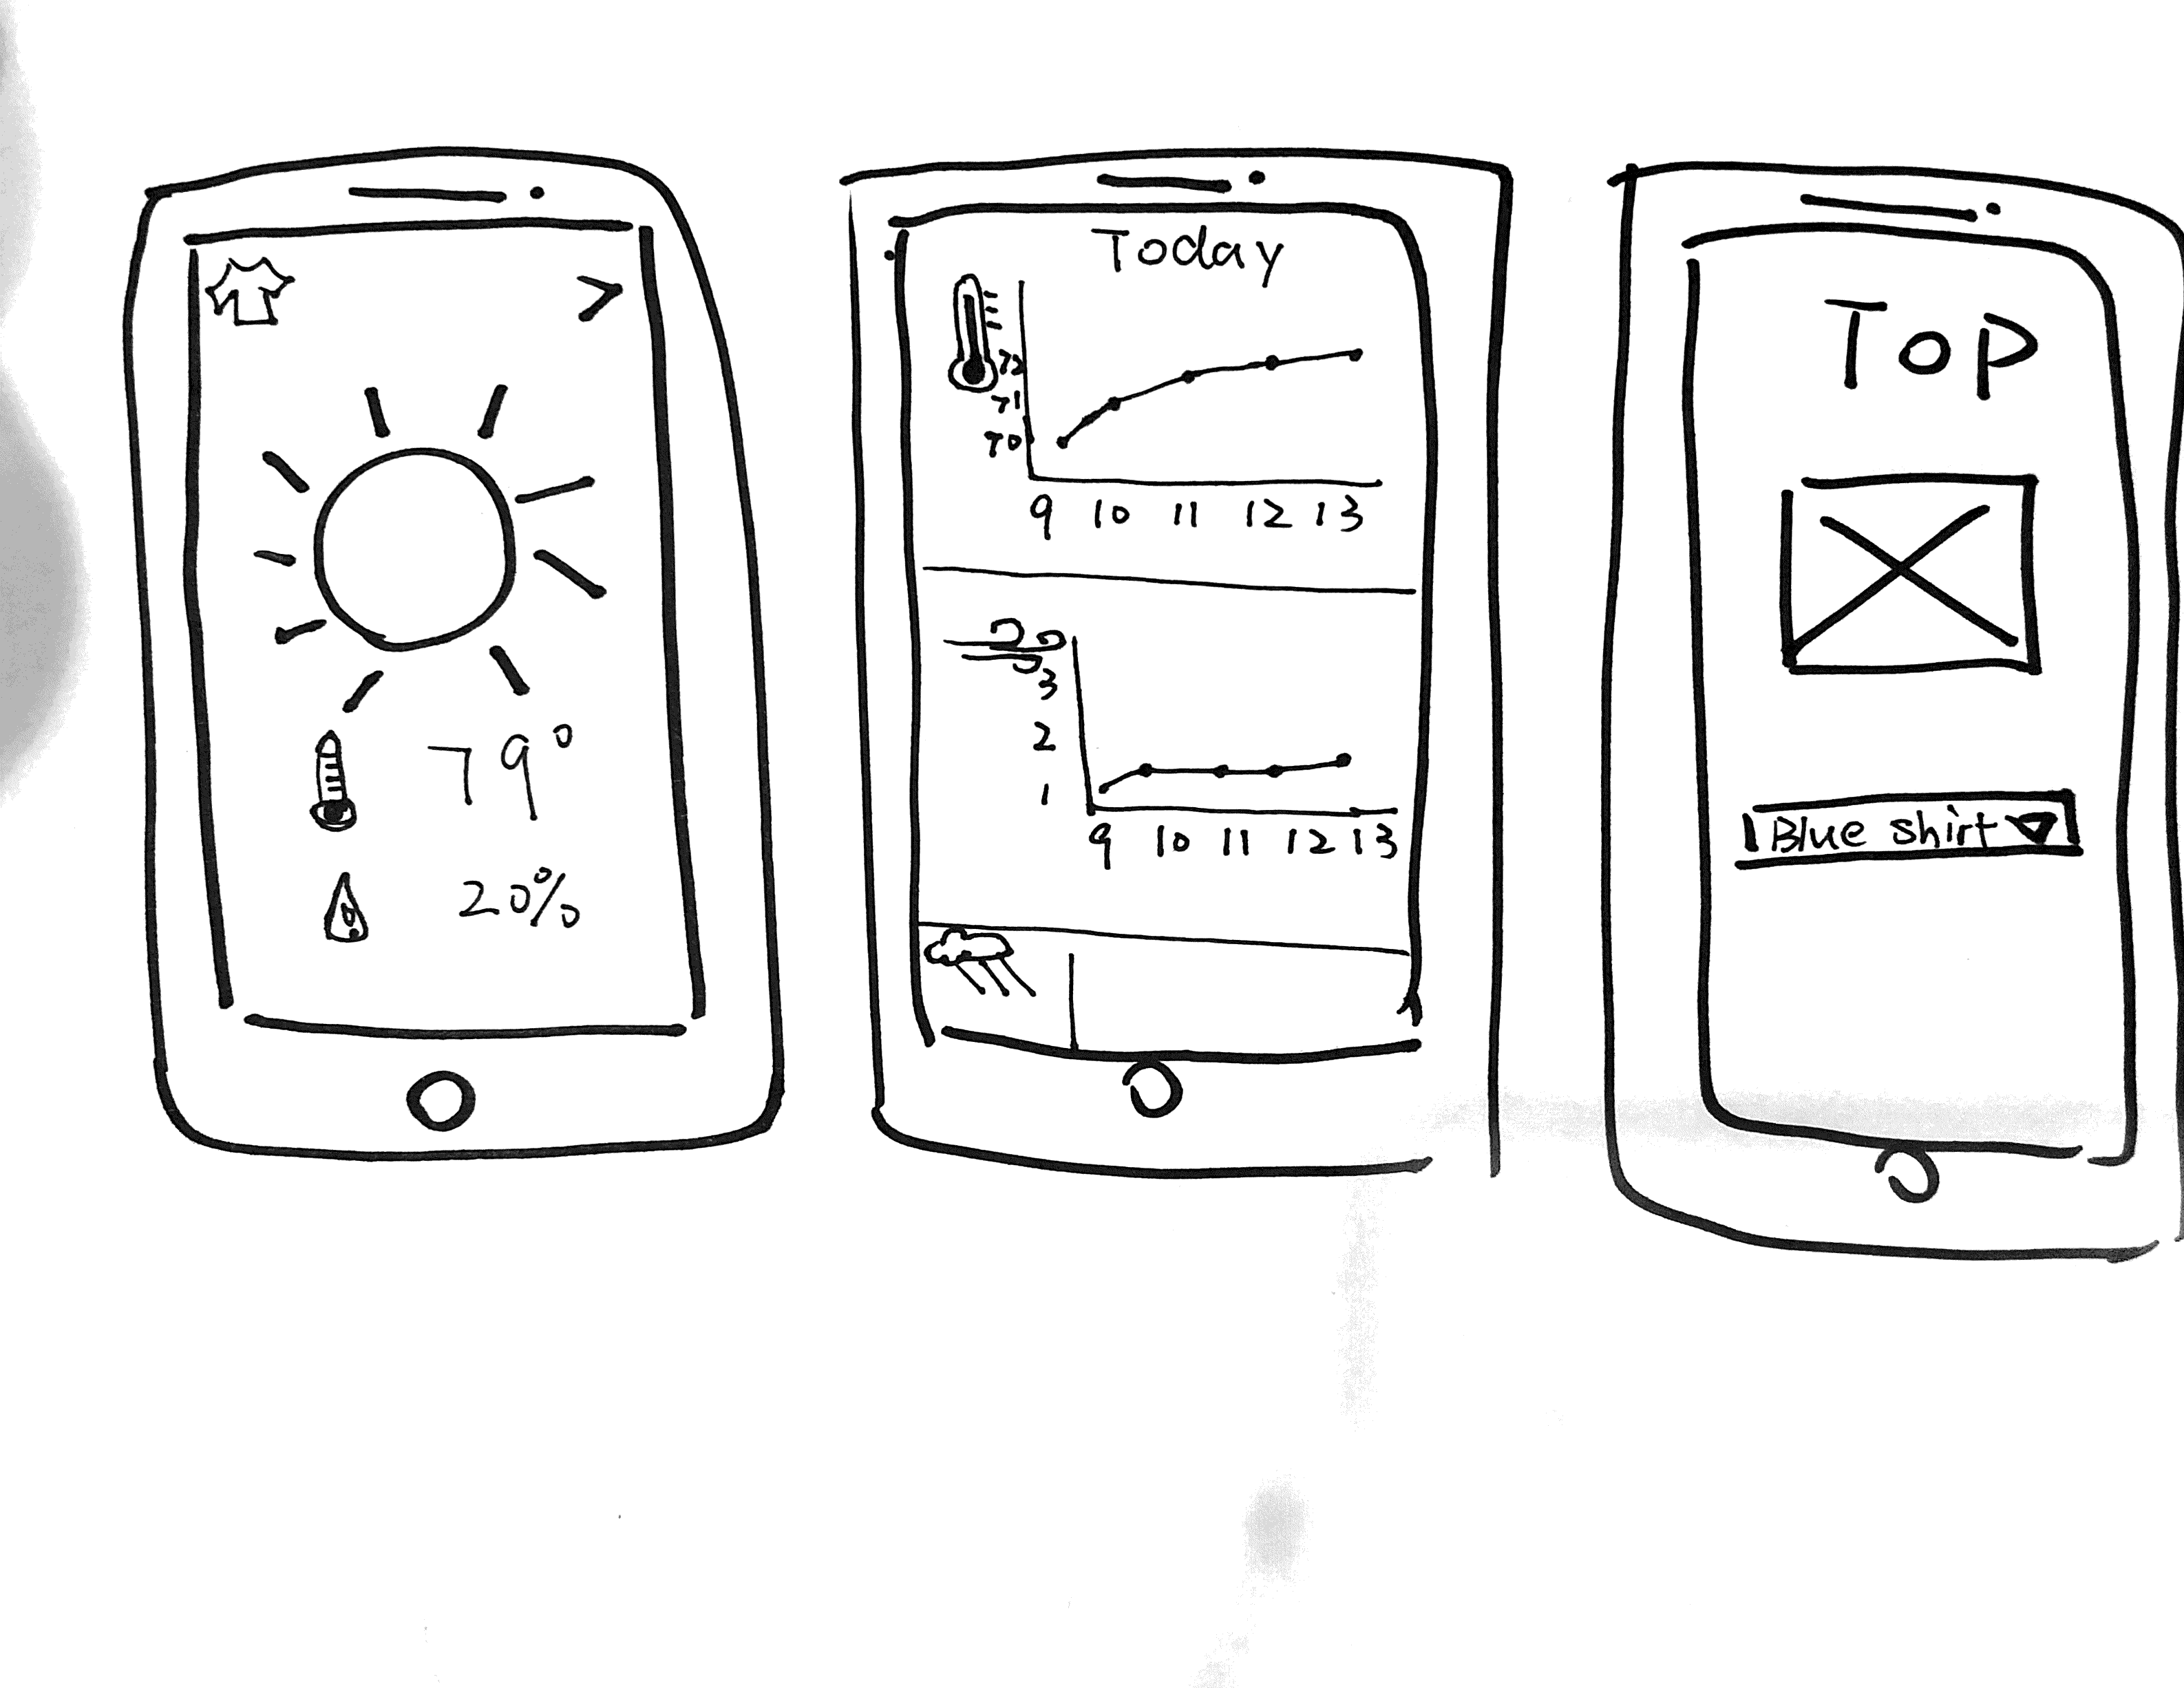 >
79°
20%
Today
72
71
70
9 10 11 12 13
3
2
1
9 10 11 12 13
Top
Blue shirt